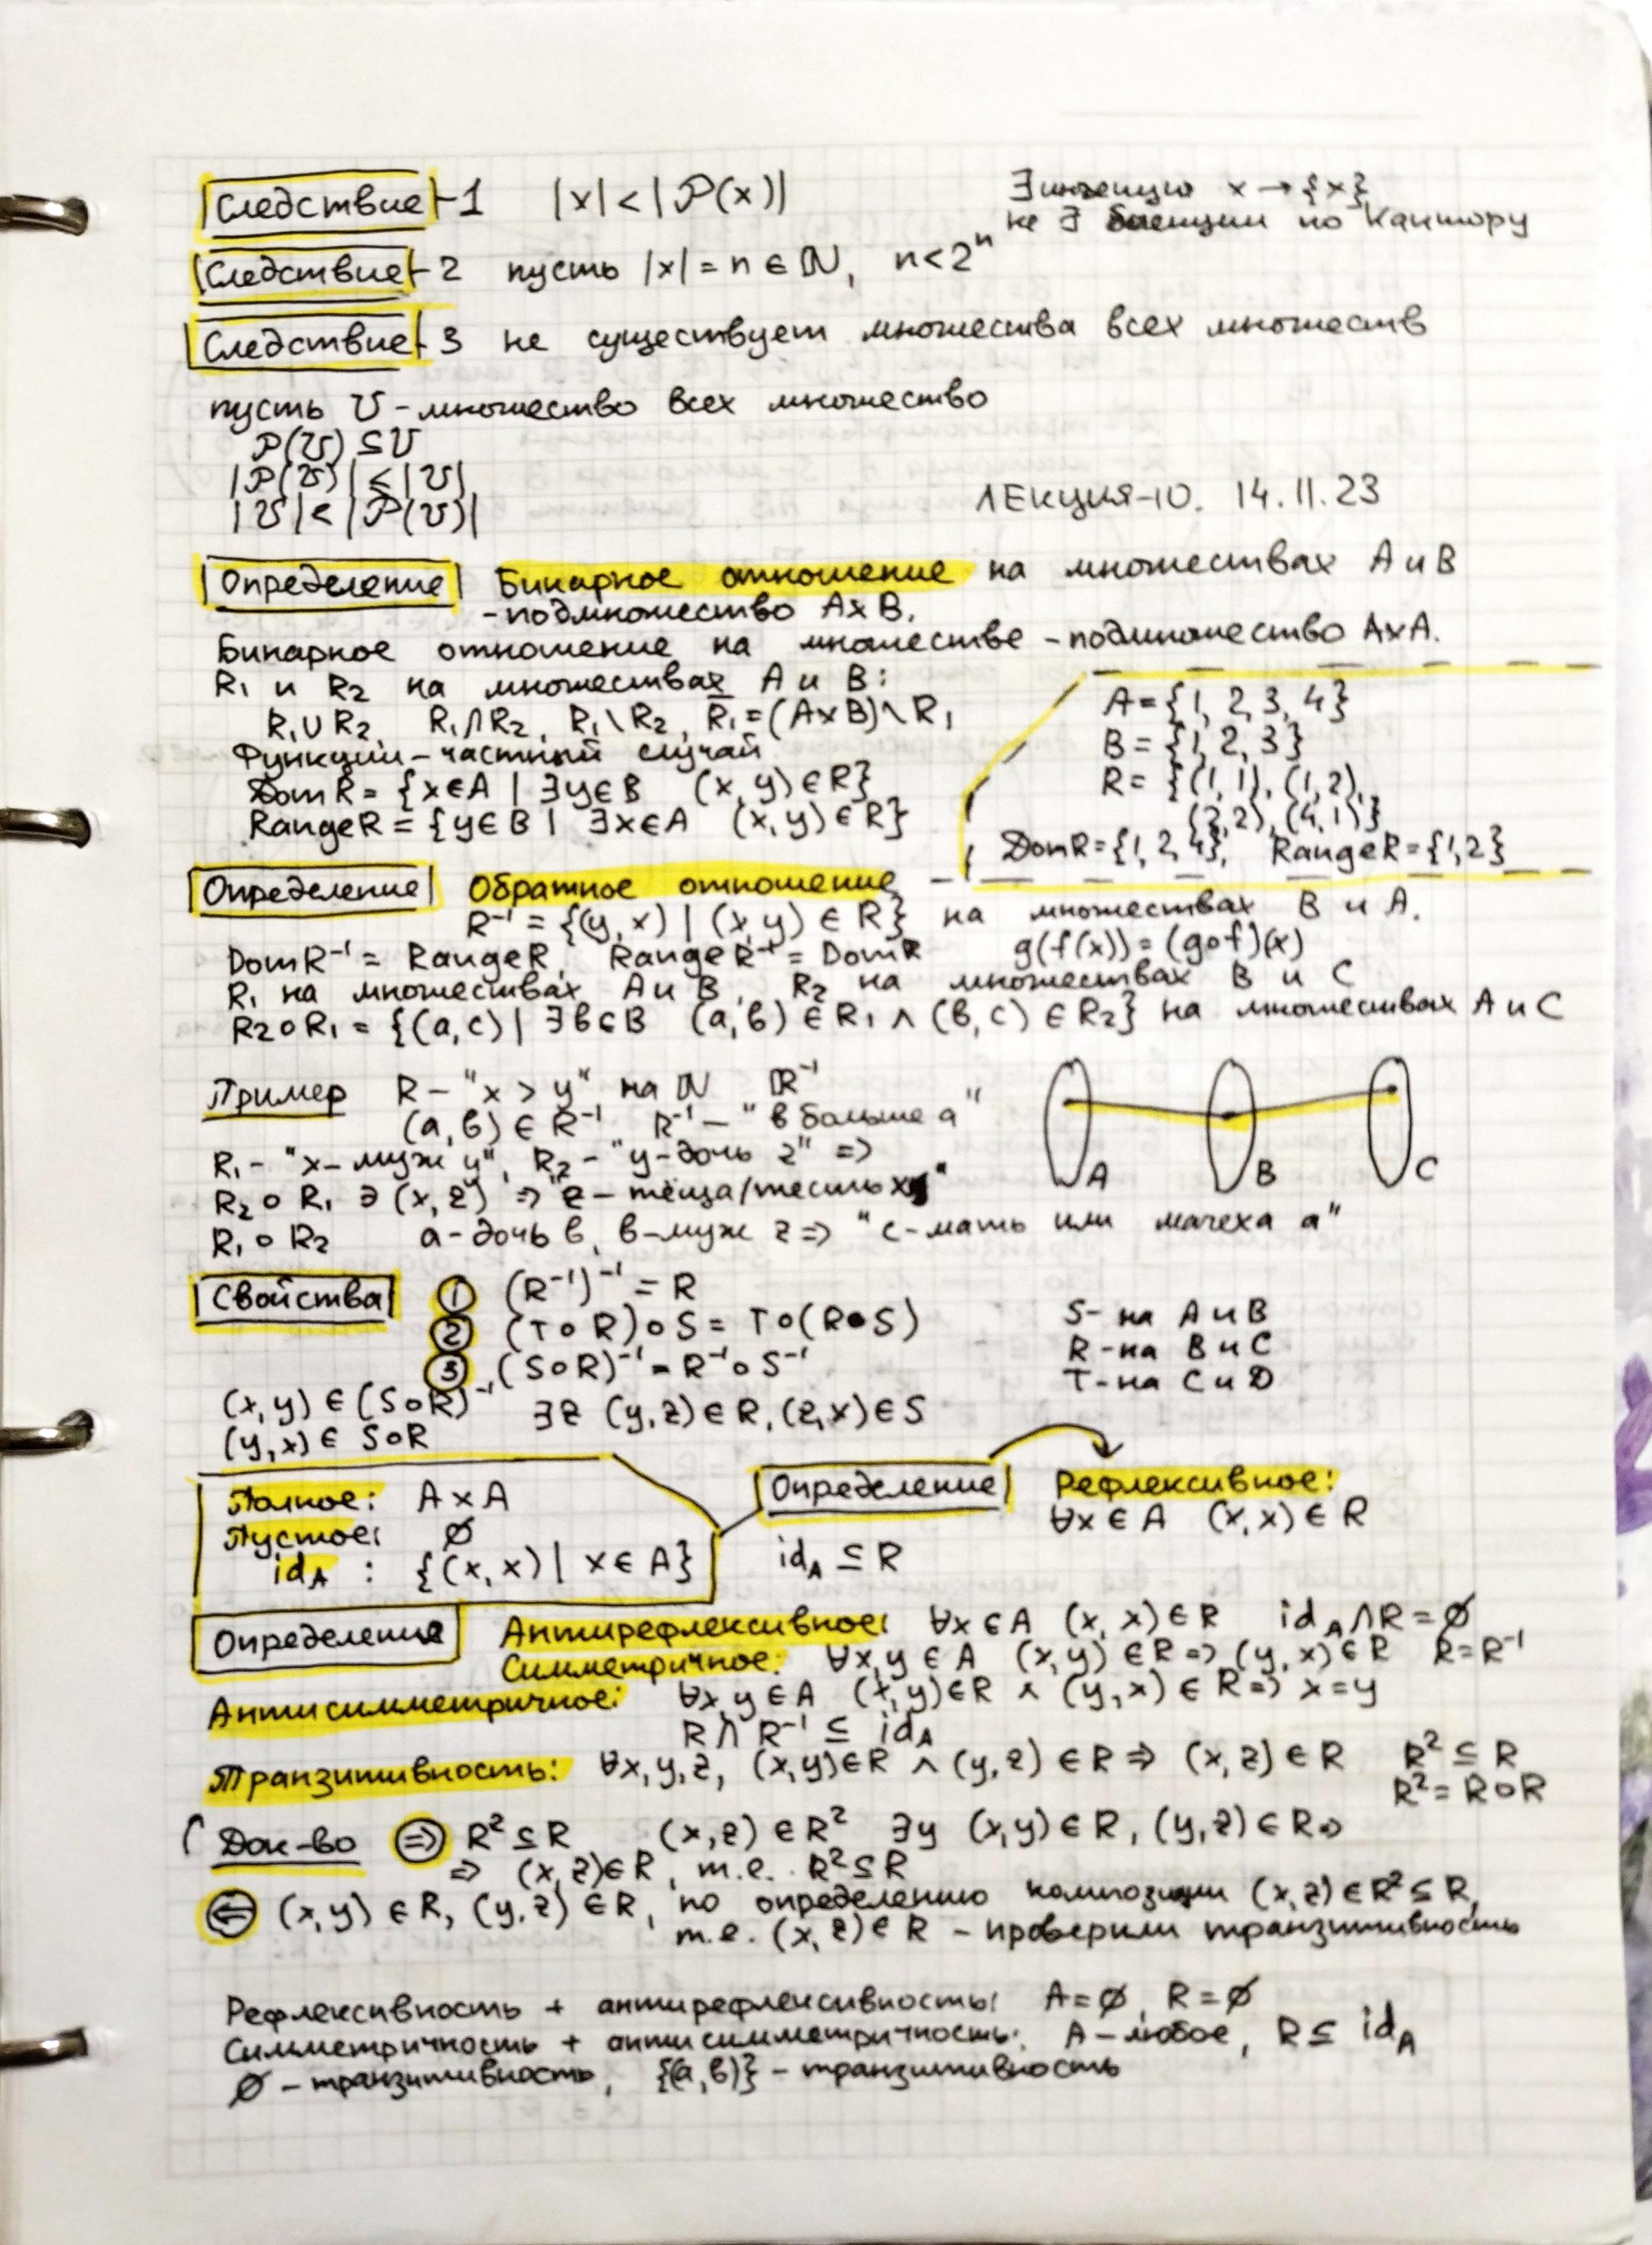 Следствие-1 |x| < |𝒫(x)| ∃ инъекция x → {x}
не ∃ биекции по Кантору
Следствие-2 пусть |x| = n ∈ ℕ, n < 2ⁿ
Следствие-3 не существует множества всех множеств
пусть U - множество всех множество
𝒫(U) ⊆ U
|𝒫(U)| ≤ |U|
|U| < |𝒫(U)|
ЛЕКЦИЯ-10. 14.11.23
Определение Бинарное отношение на множествах A и B
- подмножество A×B.
Бинарное отношение на множестве - подмножество A×A.
R₁ и R₂ на множествах A и B:
R₁∪R₂, R₁∩R₂, R₁\R₂, R̅₁ = (A×B)\R₁
Функции - частный случай
Dom R = {x∈A | ∃y∈B (x, y) ∈ R}
Range R = {y∈B | ∃x∈A (x, y) ∈ R}
A = {1, 2, 3, 4}
B = {1, 2, 3}
R = {(1, 1), (1, 2),
(2, 2), (4, 1)}
Dom R = {1, 2, 4}, Range R = {1, 2}
Определение Обратное отношение -
R⁻¹ = {(y, x) | (x, y) ∈ R} на множествах B и A.
Dom R⁻¹ = Range R, Range R⁻¹ = Dom R g(f(x)) = (g∘f)(x)
R₁ на множествах A и B, R₂ на множествах B и C
R₂∘R₁ = {(a, c) | ∃b∈B (a, b) ∈ R₁ ∧ (b, c) ∈ R₂} на множествах A и C
Пример R - "x > y" на ℕ R⁻¹
(a, b) ∈ R⁻¹ R⁻¹ - "b больше a"
R₁ - "x - муж y", R₂ - "y - дочь z" =>
R₂∘R₁ ∋ (x, z) => "z - тёща/тесть x"
R₁∘R₂ a - дочь b, b - муж z => "c - мать или мачеха a"
A B C
Свойства ① (R⁻¹)⁻¹ = R
② (T∘R)∘S = T∘(R∘S)
③ (S∘R)⁻¹ = R⁻¹∘S⁻¹
S - на A и B
R - на B и C
T - на C и D
(x, y) ∈ (S∘R)⁻¹ ∃z (y, z) ∈ R, (z, x) ∈ S
(y, x) ∈ S∘R
Полное: A×A
Пустое: ∅
id_A : {(x, x) | x ∈ A}
Определение Рефлексивное:
∀x ∈ A (x, x) ∈ R
id_A ⊆ R
Определение Антирефлексивное: ∀x ∈ A (x, x) ∈ R id_A ∩ R = ∅
Симметричное: ∀x, y ∈ A (x, y) ∈ R => (y, x) ∈ R R = R⁻¹
Антисимметричное: ∀x, y ∈ A (x, y) ∈ R ∧ (y, x) ∈ R => x = y
R ∩ R⁻¹ ⊆ id_A
Транзитивность: ∀x, y, z, (x, y) ∈ R ∧ (y, z) ∈ R => (x, z) ∈ R R² ⊆ R
R² = R∘R
Док-во => R² ⊆ R (x, z) ∈ R² ∃y (x, y) ∈ R, (y, z) ∈ R =>
=> (x, z) ∈ R, т.е. R² ⊆ R
<= (x, y) ∈ R, (y, z) ∈ R, по определению композиции (x, z) ∈ R² ⊆ R,
т.е. (x, z) ∈ R - проверили транзитивность
Рефлексивность + антирефлексивность: A = ∅, R = ∅
Симметричность + антисимметричность: A - любое, R ⊆ id_A
∅ - транзитивность, {(a, b)} - транзитивность